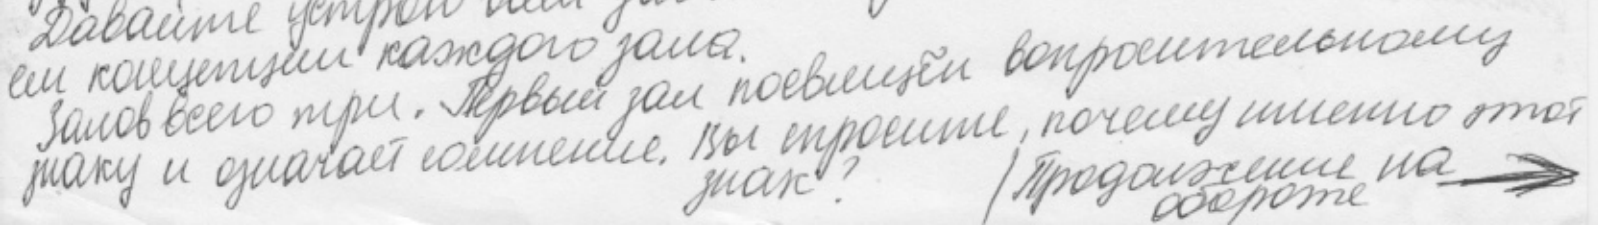 Давайте устрои
ем концепции каждого зала.
Залов всего три. Первый зал посвящён вопросительному
знаку и означает сомнение. Вы спросите, почему именно этот
знак?
(Продолжение на
обороте